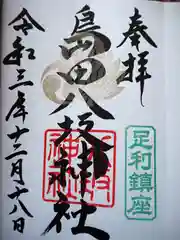 奉拝
足利鎮座
島田八坂神社
令和三年十二月十八日